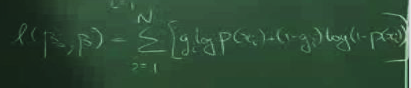 l(β₀, β) = Σᵢ₌₁ᴺ [gᵢ log p(xᵢ) + (1-gᵢ) log(1-p(xᵢ))